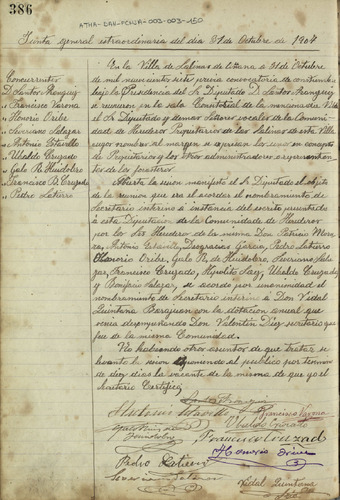 386
ATHA-DAH-FCHUA-003-003-150
Junta general extraordinaria del dia 31 de Octubre de 1907
Concurrentes
D. Santos Aranguiz
" Francisco Varona
" Honorio Oribe
" Severiano Salazar
" Antonio
" Ubaldo Cruzado
" Galo R. Huidobro
" Francisco R. Cruzado
" Pedro Latierro
En la Villa de Salinas de Añana a 31 de Octubre
de mil novecientos siete previa convocatoria
bajo la Presidencia del Sr. Diputado D. Santos Aranguiz
se reunieron en la sala Consitorial de la mancomunada Villa
el Sr Diputado y demas Señores vocales de la Comuni-
dad de Herederos Propietarios de las Salinas de esta Villa
cuyos nombres al margen se espresan los unos en concepto
de Propietarios y los otros administradores o representan-
tes de los forasteros.
Abierta la sesion manifestó el Sr Diputado el objeto
de la reunion que era el acordar el nombramiento de
Secretario interino á instancia del escrito presentado
á esta Diputacion de la Comunidad de Herederos
por los Sres Herederos de la misma Don Patricio
Antonio Deogracias Garcia, Pedro Latierro
Honorio Oribe, Galo R. de Huidobro, Severiano Sala-
zar, Francisco Cruzado, Hipolito Ubaldo Cruzado
y Bonifacio Salazar, se acordo por unanimidad el
nombramiento de Secretario interino a Don Vidal
Quintana con la dotacion anual que
venia desempeñando Don Valentin Diez secretario que
fue de la misma Comunidad.
No habiendo otros asuntos de que tratar se
levanto la sesion esponiendo al publico por termino
de diez dias la vacante de la misma de que yo el
Secretario Certifico
Santos Aranguiz
Antonio
Francisco Varona
Galo Ruiz de Huidobro
Ubaldo Cruzado
Francisco Cruzado
Honorio Oribe
Pedro Latierro
Severiano Salazar
Vidal Quintana